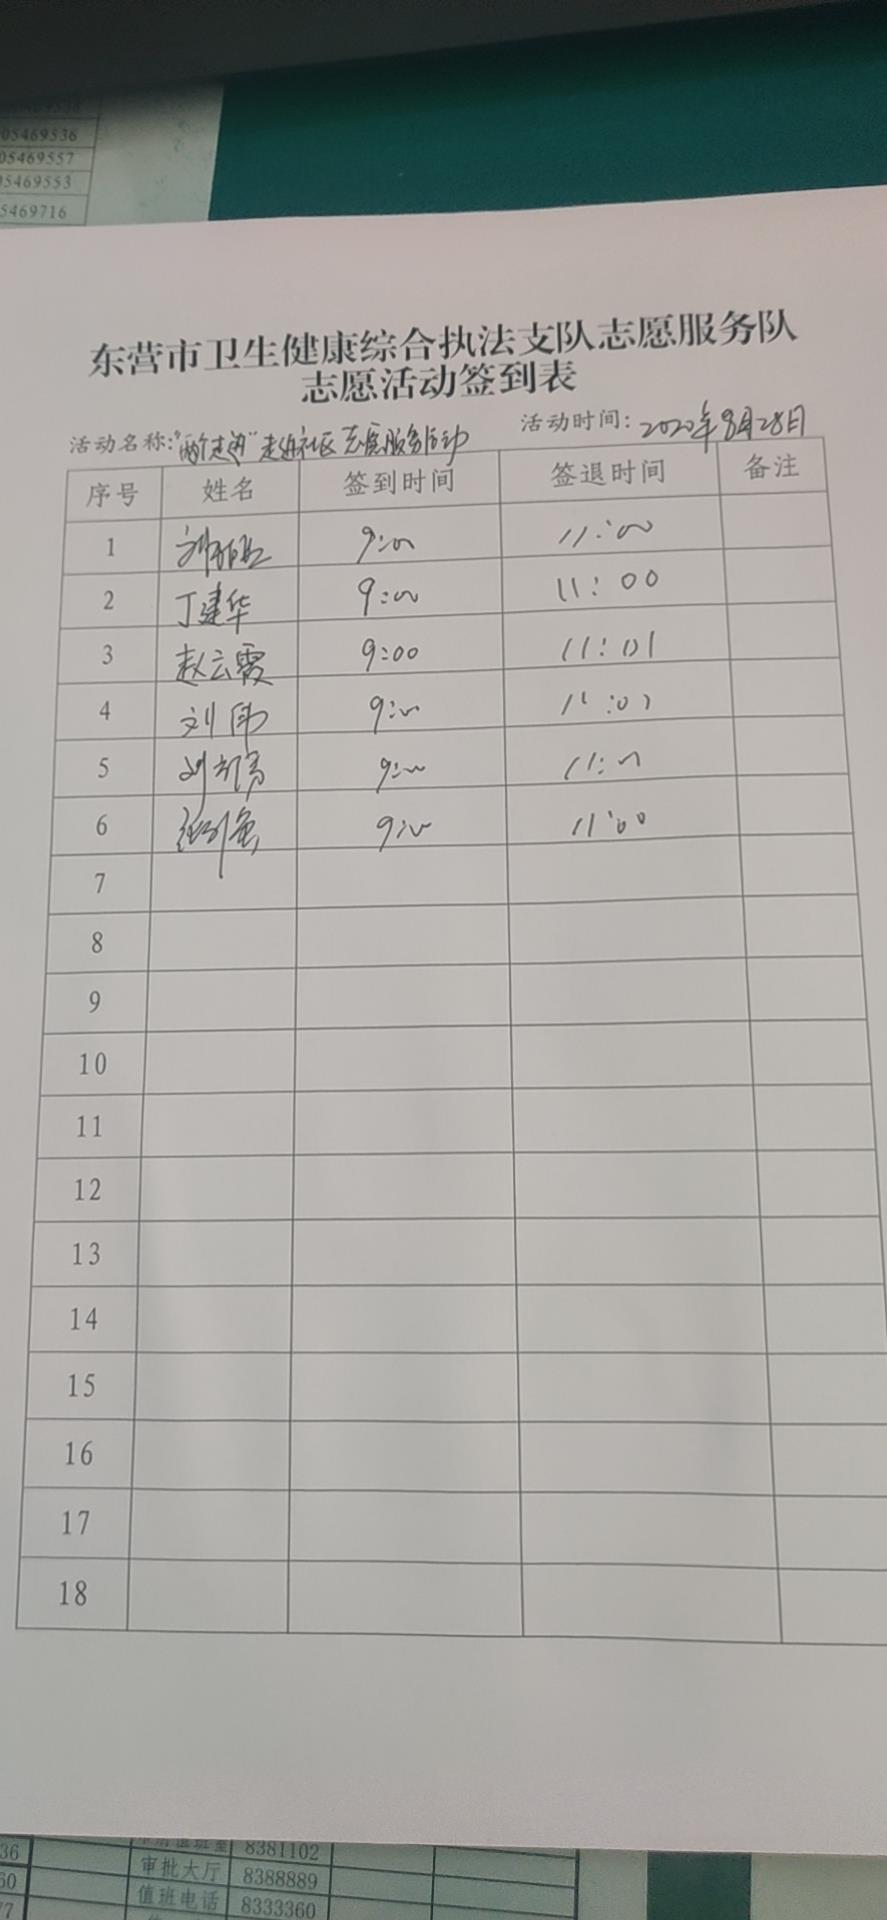 05469536
05469557
05469553
5469716
东营市卫生健康综合执法支队志愿服务队
志愿活动签到表
活动名称:"两个走进"走进社区志愿服务活动 活动时间:2020年8月28日
序号 姓名 签到时间 签退时间 备注
1 9:00 11:00
2 丁建华 9:00 11:00
3 赵云霞 9:00 11:01
4 刘伟 9:00
5 9:00
6 9:00 11:00
7
8
9
10
11
12
13
14
15
16
17
18
36 8381102
60 审批大厅 8388889
77 值班电话 8333360